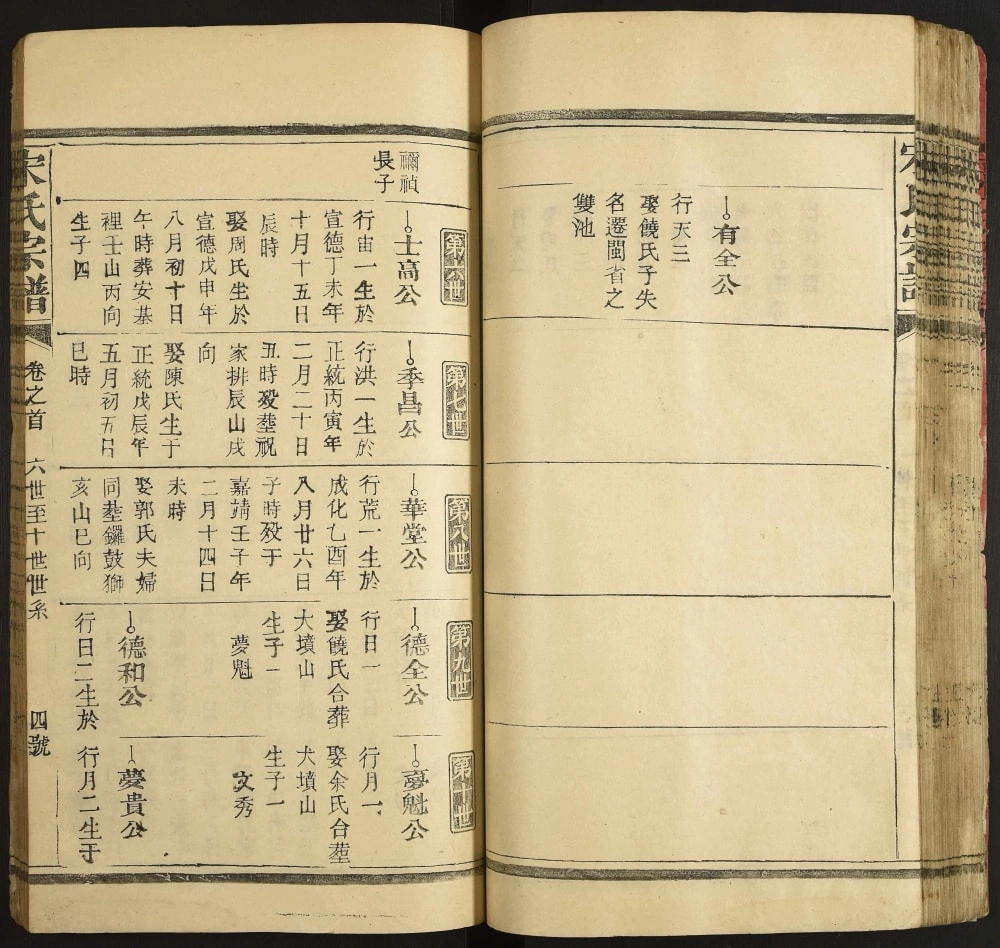 有全公
行天三
娶饒氏子失
名遷閩省之
雙池
禰禎
長子
第六世
士高公
行宙一生於
宣德丁未年
十月十五日
辰時
娶周氏生於
宣德戊申年
八月初十日
午時葬安基
裡壬山丙向
生子四
第七世
季昌公
行洪一生於
正統丙寅年
二月二十日
丑時歿塟祝
家排辰山戌
向
娶陳氏生于
正統戊辰年
五月初五日
巳時
第八世
華堂公
行荒一生於
成化乙酉年
八月廿六日
子時歿于
嘉靖壬子年
二月十四日
未時
娶郭氏夫婦
同塟鑼鼓獅
亥山巳向
第九世
德全公
行日一
娶饒氏合葬
大墳山
生子一
夢魁
德和公
行日二生於
第十世
夢魁公
行月一
娶余氏合塟
大墳山
生子一
文秀
夢貴公
行月二生于
宋氏宗譜
卷之首
六世至十世世系
四號